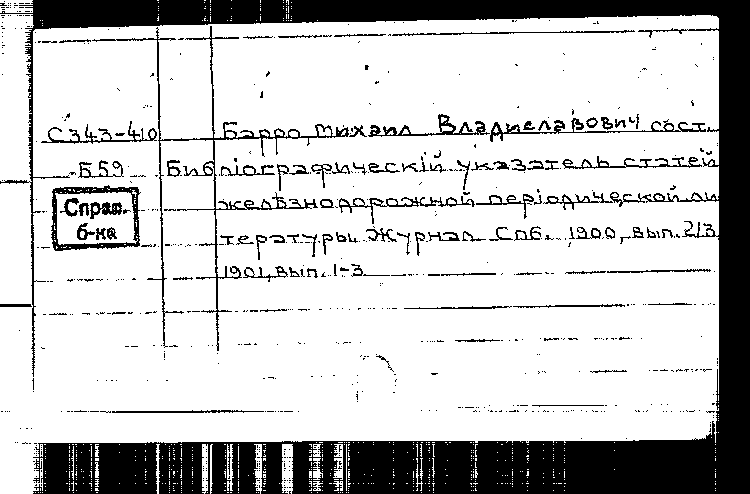 С343-410 Барро, Михаил Владиславович сост.
Б59 Библіографическій указатель статей
желѣзнодорожной періодической ли
Справ.
б-ка
тературы. Журнал Спб. 1900, вып. 2/3
1901, вып. 1-3